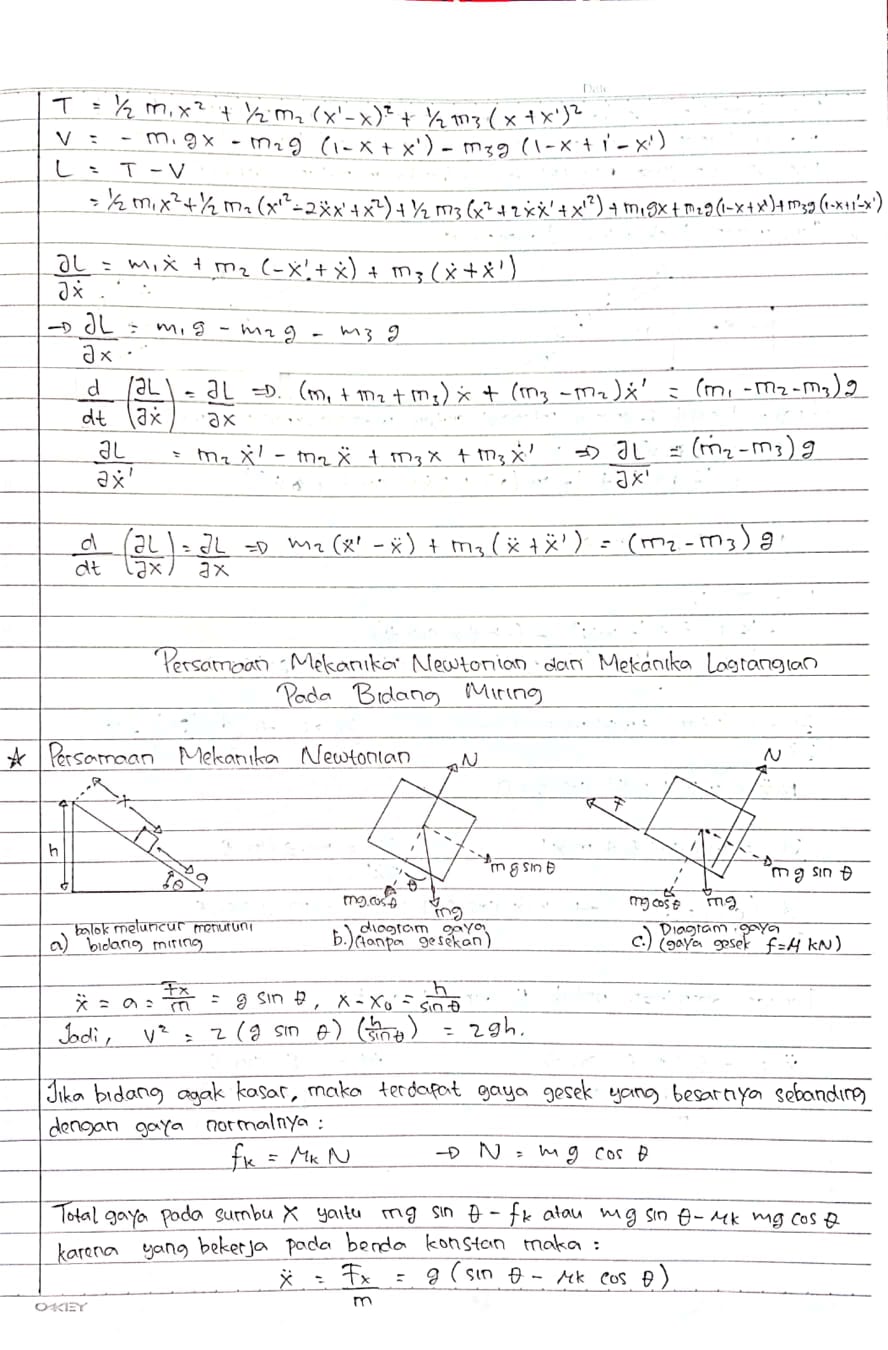 Date
T = ½ m₁x² + ½ m₂ (x'-x)² + ½ m₃ (x+x')²
V = - m₁gx - m₂g (l-x+x') - m₃g (l-x+l'-x')
L = T - V
= ½ m₁x² + ½ m₂ (x'² - 2ẍx' + x²) + ½ m₃ (x² + 2ẋẋ' + x'²) + m₁gx + m₂g (l-x+x') + m₃g (l-x+l'-x')
∂L/∂ẋ = m₁ẋ + m₂ (-ẋ' + ẋ) + m₃ (ẋ + ẋ')
→ ∂L/∂x = m₁g - m₂g - m₃g
d/dt (∂L/∂ẋ) = ∂L/∂x ⇒ (m₁ + m₂ + m₃) ẋ + (m₃ - m₂) ẋ' = (m₁ - m₂ - m₃) g
∂L/∂ẋ' = m₂ẋ' - m₂ẍ + m₃x + m₃ẋ' ⇒ ∂L/∂x' = (m₂ - m₃) g
d/dt (∂L/∂x) = ∂L/∂x ⇒ m₂ (ẍ' - ẍ) + m₃ (ẍ + ẍ') = (m₂ - m₃) g
Persamaan Mekanika Newtonian dan Mekanika Lagrangian
Pada Bidang Miring
☆ Persamaan Mekanika Newtonian
x
h
a
θ
N
mg sin θ
mg cos θ
θ
mg
N
F
mg sin θ
mg cos θ
mg
a) balok meluncur menuruni
bidang miring
b.) diagram gaya
(tanpa gesekan)
c.) Diagram gaya
(gaya gesek f=μ kN)
ẍ = a = Fx/m = g sin θ, x - x₀ = h/sin θ
Jadi, v² = 2 (g sin θ) (h/sin θ) = 2gh.
Jika bidang agak kasar, maka terdapat gaya gesek yang besarnya sebanding
dengan gaya normalnya :
fk = μk N → N = mg cos θ
Total gaya pada sumbu X yaitu mg sin θ - fk atau mg sin θ - μk mg cos θ
karena yang bekerja pada benda konstan maka :
ẍ = Fx/m = g (sin θ - μk cos θ)
OKEY